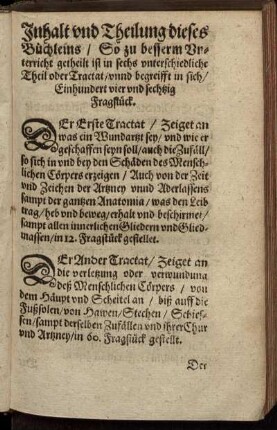 Inhalt vnd Theilung dieses
Büchleins / So zu besserm Vn-
terricht getheilt ist in sechs vnterschiedliche
Theil oder Tractat / vnnd begreifft in sich /
Einhundert vier vnd sechtzig
Fragstück.
DEr Erste Tractat / Zeiget an
was ein Wundartzt sey / vnd wie er
geschaffen seyn soll / auch die Zufäll /
so sich in vnd bey den Schäden des Mensch-
lichen Cörpers erzeigen / Auch von der Zeit
vnd Zeichen der Artzney vnnd Aderlassens
sampt der gantzen Anatomia / was den Leib
trag / heb vnd beweg / erhalt vnd beschirmet /
sampt allen innerlichen Gliedern vnd Glied-
massen / in 12. Fragstück gestellet.
DEr Ander Tractat / Zeiget an
die verletzung oder verwundung
deß Menschlichen Cörpers / von
dem Häupt vnd Scheitel an / biß auff die
Fußsolen / von Hawen / Stechen / Schies-
sen / sampt derselben Zufällen vnd jhrer Chur
vnd Artzney / in 60. Fragstück gestellt.
Der